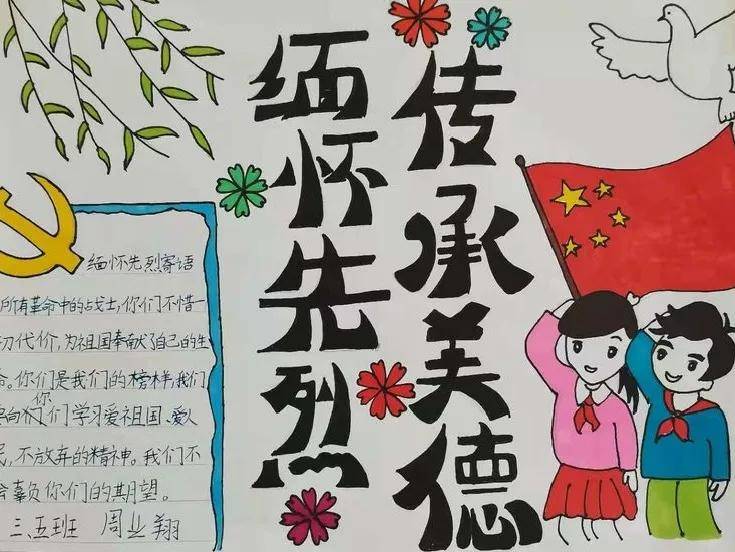 缅怀先烈
传承美德
缅怀先烈寄语
所有革命中的战士,你们不惜一
切代价,为祖国奉献了自己的生
命。你们是我们的榜样,我们
要向你们学习爱祖国、爱人
民,不放弃的精神。我们不
会辜负你们的期望。
三、五班 周业翔